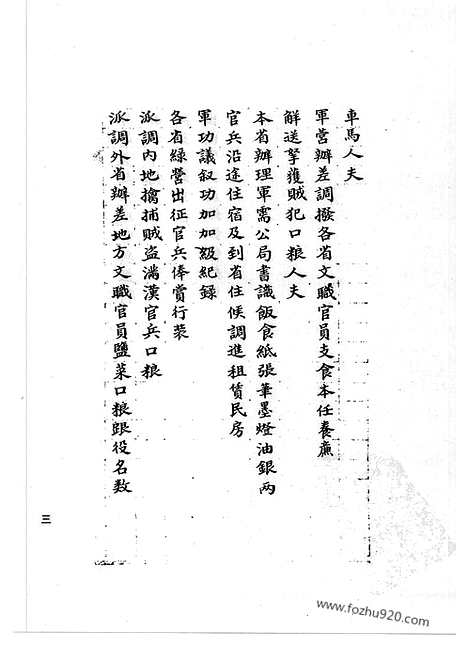 車馬人夫
軍營辦差調撥各省文職官員支食本任養廉
解送拏獲賊犯口粮人夫
本省辦理軍需公局書識飯食紙張筆墨燈油銀兩
官兵沿途住宿及到省住候調進租賃民房
軍功議叙功加加級紀錄
各省綠營出征官兵俸賞行裝
派調內地擒捕賊盜滿漢官兵口粮
派調外省辦差地方文職官員鹽菜口粮跟役名数
三
www.fozhu920.com